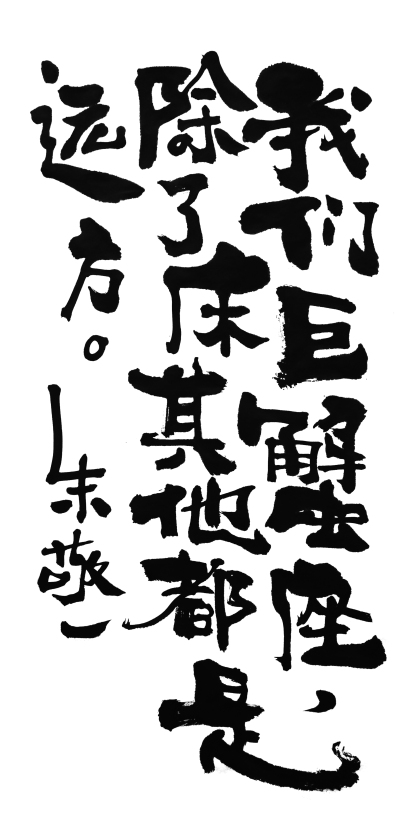 我们巨蟹座，
除了床其他都是
远方。
—朱敬一